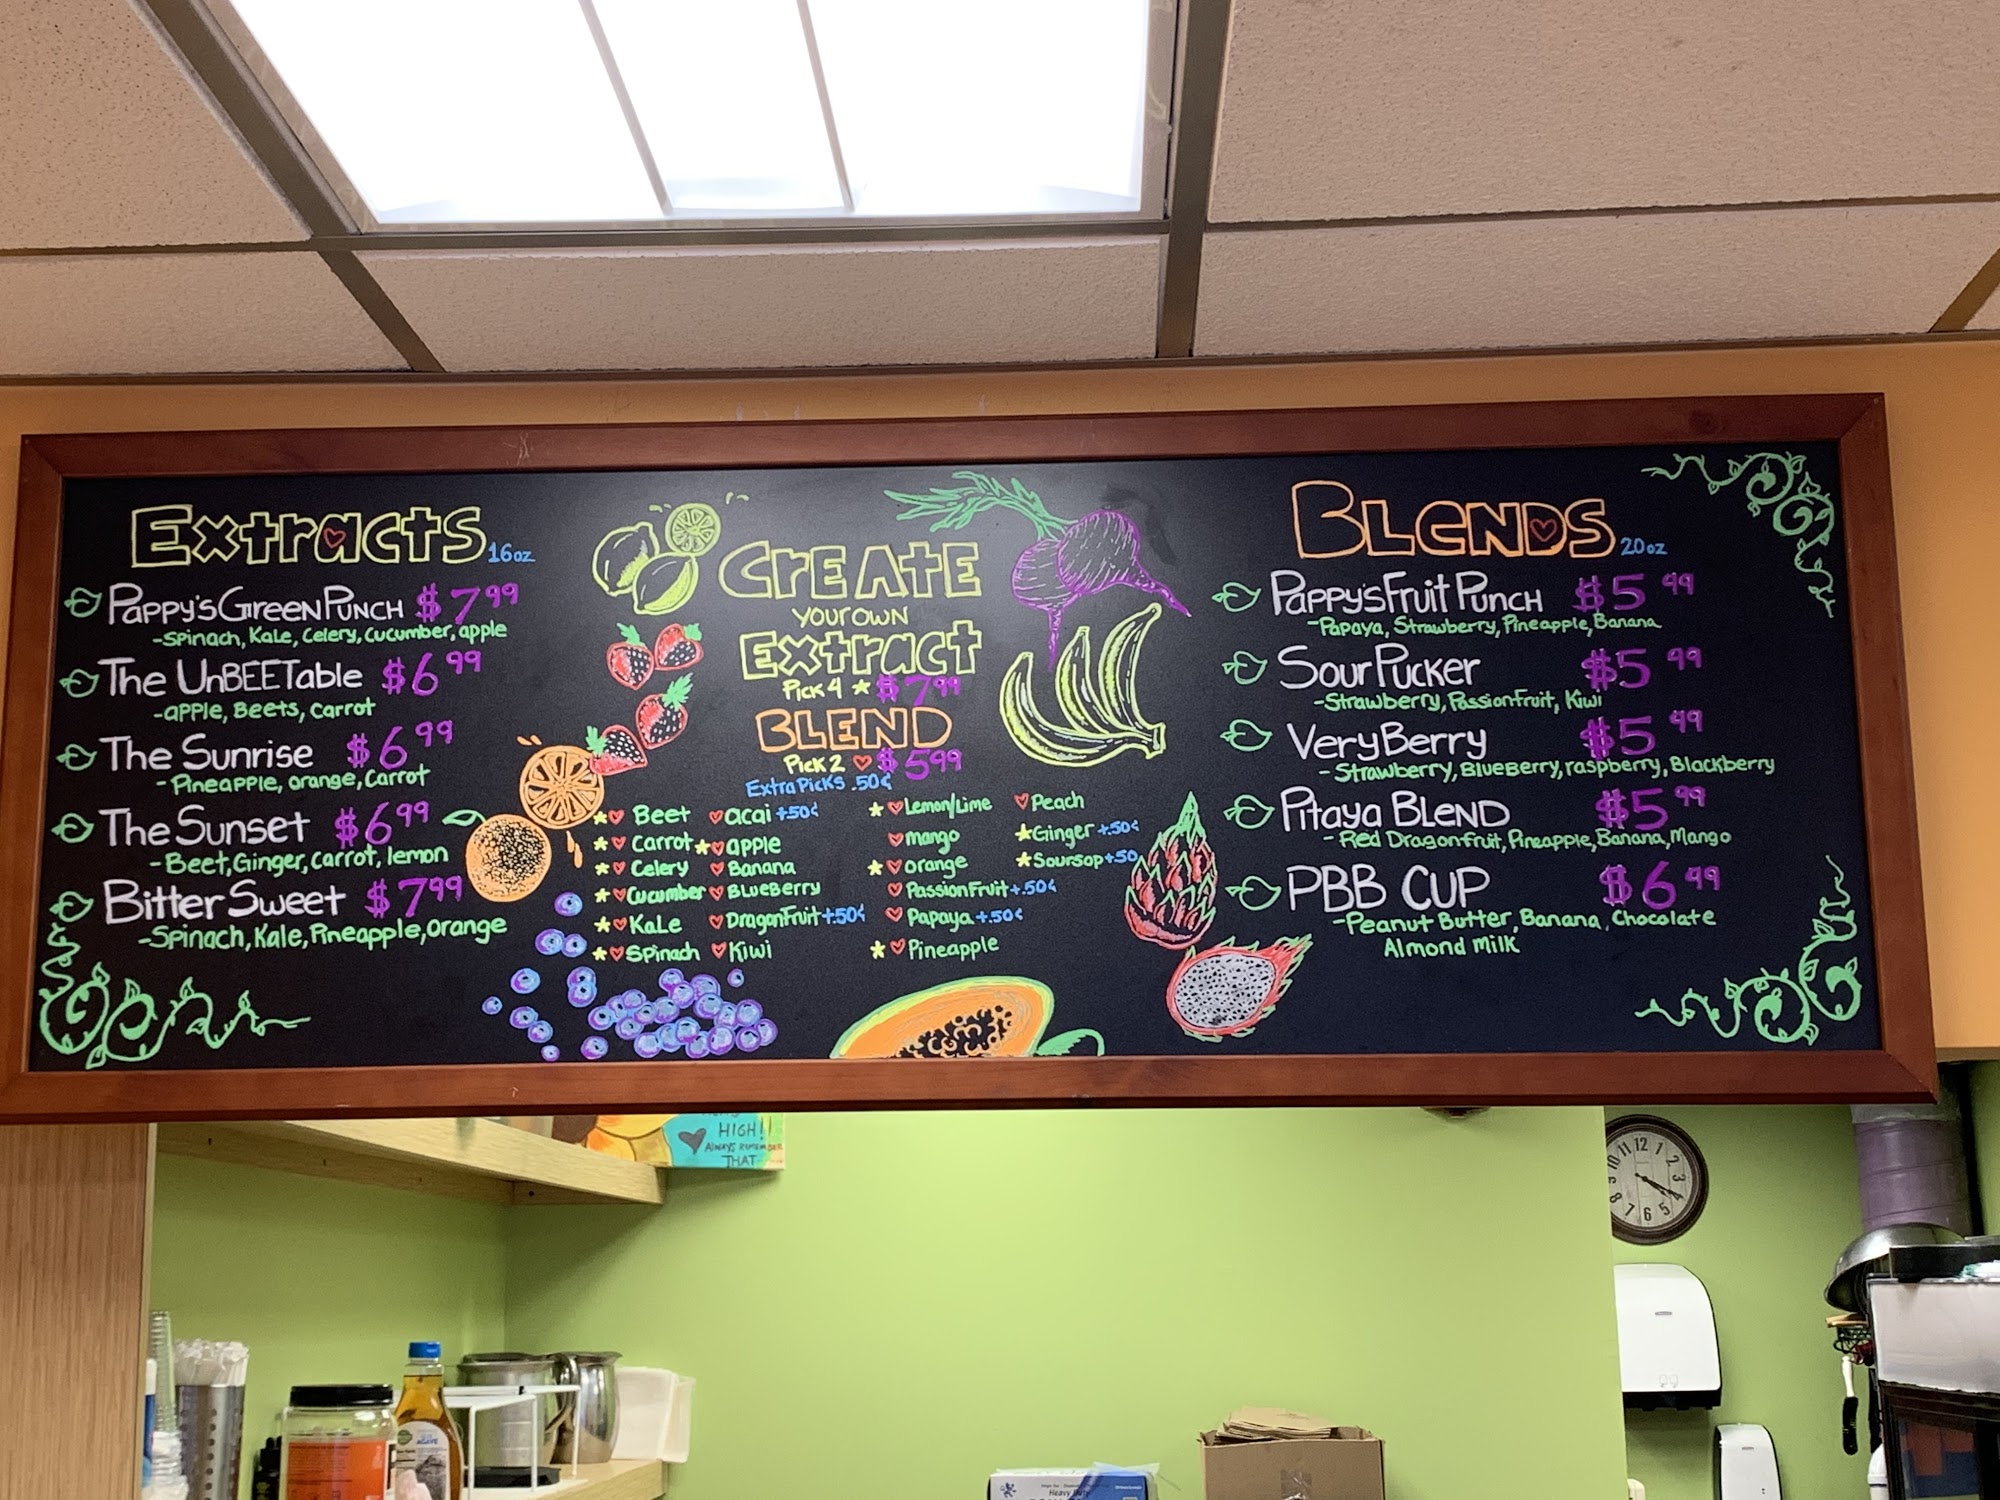 Extracts 16oz
Pappy's Green Punch $7.99
-Spinach, Kale, Celery, Cucumber, apple
The UnBEETable $6.99
-apple, Beets, Carrot
The Sunrise $6.99
-Pineapple, orange, Carrot
The Sunset $6.99
-Beet, Ginger, carrot, lemon
Bitter Sweet $7.99
-Spinach, Kale, Pineapple, orange
CREATE
YOUR OWN
Extract
Pick 4 * $7.99
BLEND
Pick 2 ♡ $5.99
Extra Picks .50¢
*♡ Beet
*♡ Carrot
*♡ Celery
*♡ Cucumber
*♡ Kale
*♡ Spinach
♡ acai +.50¢
*♡ apple
♡ Banana
♡ BlueBerry
♡ DragonFruit +.50¢
♡ Kiwi
*♡ Lemon/Lime
♡ mango
*♡ orange
♡ PassionFruit +.50¢
♡ Papaya +.50¢
*♡ Pineapple
♡ Peach
* Ginger +.50¢
* Soursop +.50
BLENDS 20oz
Pappy's Fruit Punch $5.99
-Papaya, Strawberry, Pineapple, Banana
Sour Pucker $5.99
-Strawberry, Passionfruit, Kiwi
Very Berry $5.99
-Strawberry, BlueBerry, raspberry, Blackberry
Pitaya Blend $5.99
-Red Dragonfruit, Pineapple, Banana, Mango
PBB CUP $6.99
-Peanut Butter, Banana, Chocolate
Almond Milk
HIGH!!
ALWAYS REMEMBER
THAT
11 12 1 2 3 5 6 7 8 9 10
AGAVE
Heavy Duty